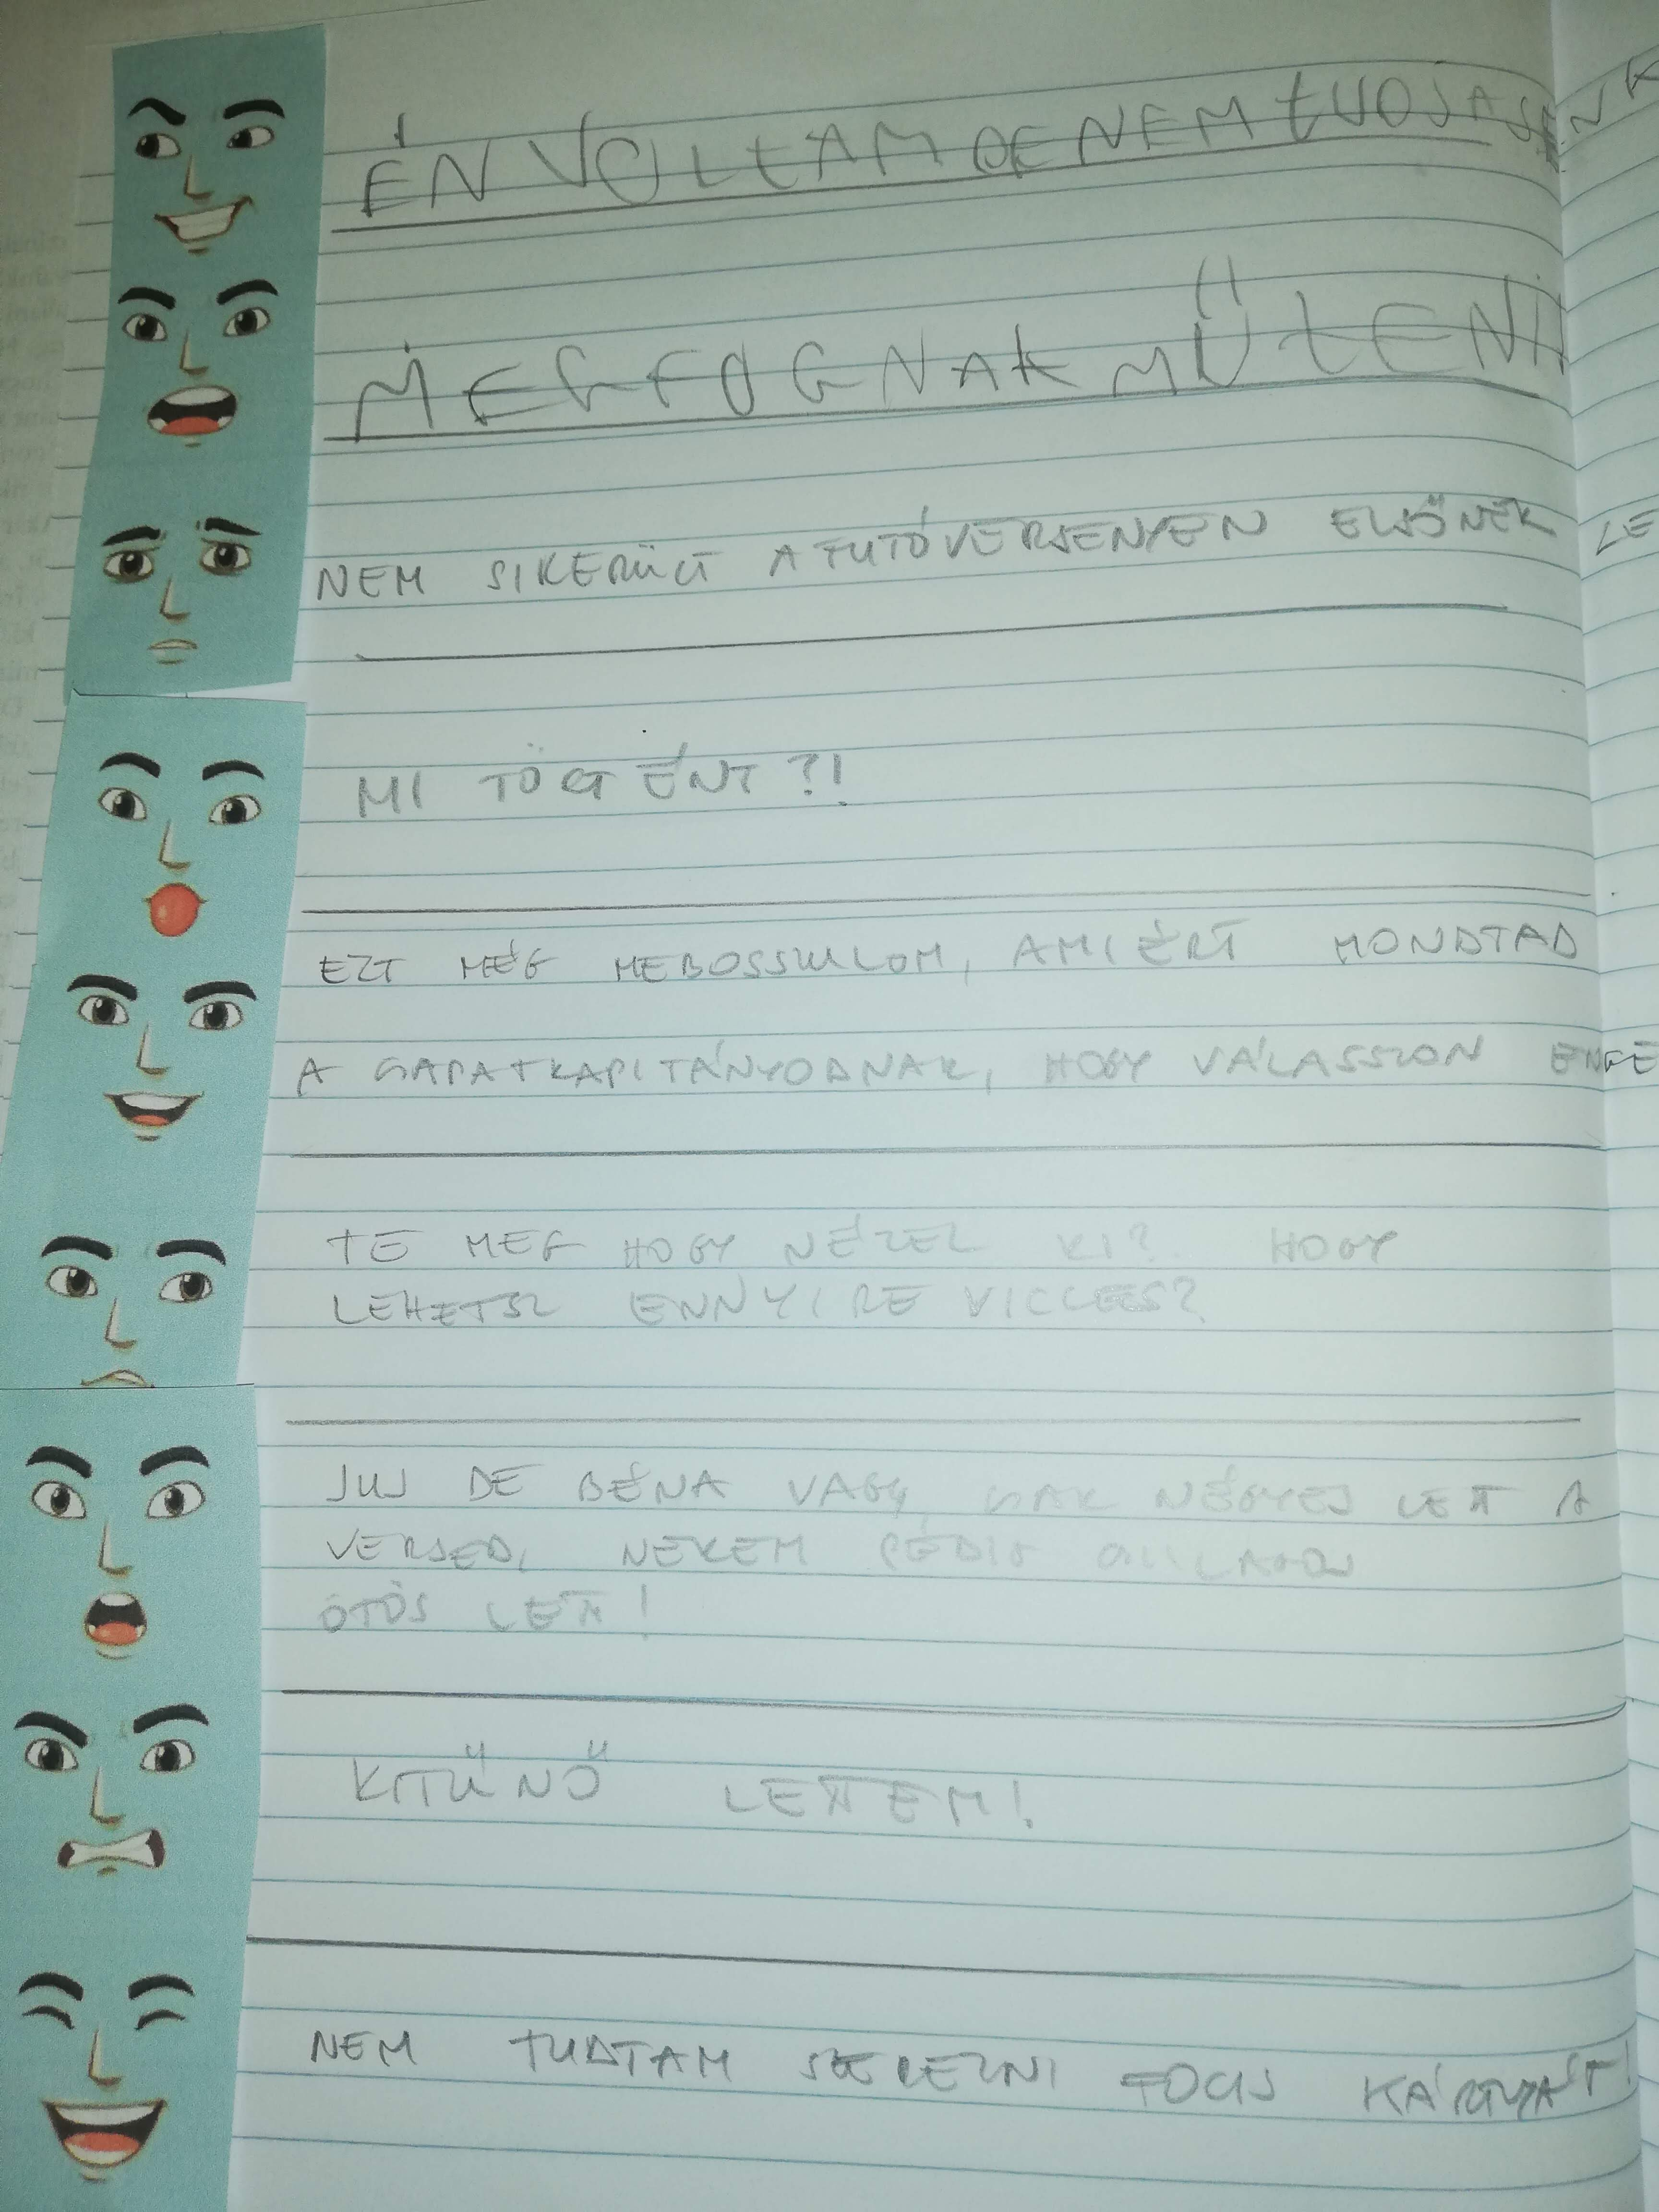 ÉN VOLTAM DE NEM TUDJA SENK
MEG FOGNAK MŰTENI
NEM SIKERÜLT A FUTÓVERSENYEN ELSŐNEK LE
MI TÖRTÉNT?!
EZT MÉG MEBOSSZULOM, AMIÉRT MONDTAD
A CSAPATKAPITÁNYODNAK, HOGY VÁLASSZON ENGE
TE MEG HOGY NÉZEL KI? HOGY
LEHETSZ ENNYIRE VICCES?
JUJ DE BÉNA VAGY, CSAK NÉGYES LETT A
VERSED, NEKEM PEDIG CSILLAGOS
ÖTÖS LETT!
KITŰNŐ LETTEM!
NEM TUDTAM SZEREZNI FOCIS KÁRTYÁT!